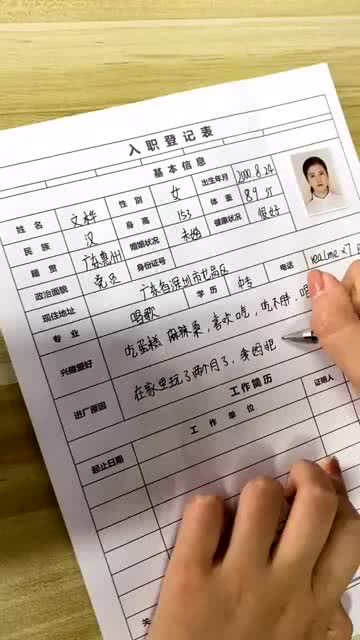 入职登记表
基本信息
姓名 文桦 性别 女 出生年月 2000.8.24
民族 汉 身高 153 体重 89斤
籍贯 广东惠州 婚姻状况 未婚 健康状况 很好
政治面貌 党员 身份证号
现住地址 广东省深圳市龙岗区
专业 唱歌 学历 中专 电话 realme x7
兴趣爱好 吃蛋糕 麻辣烫，喜欢吃，吃不胖，
进厂原因 在家里玩了两个月了，爹妈把
工作简历
起止日期 工作单位 证明人